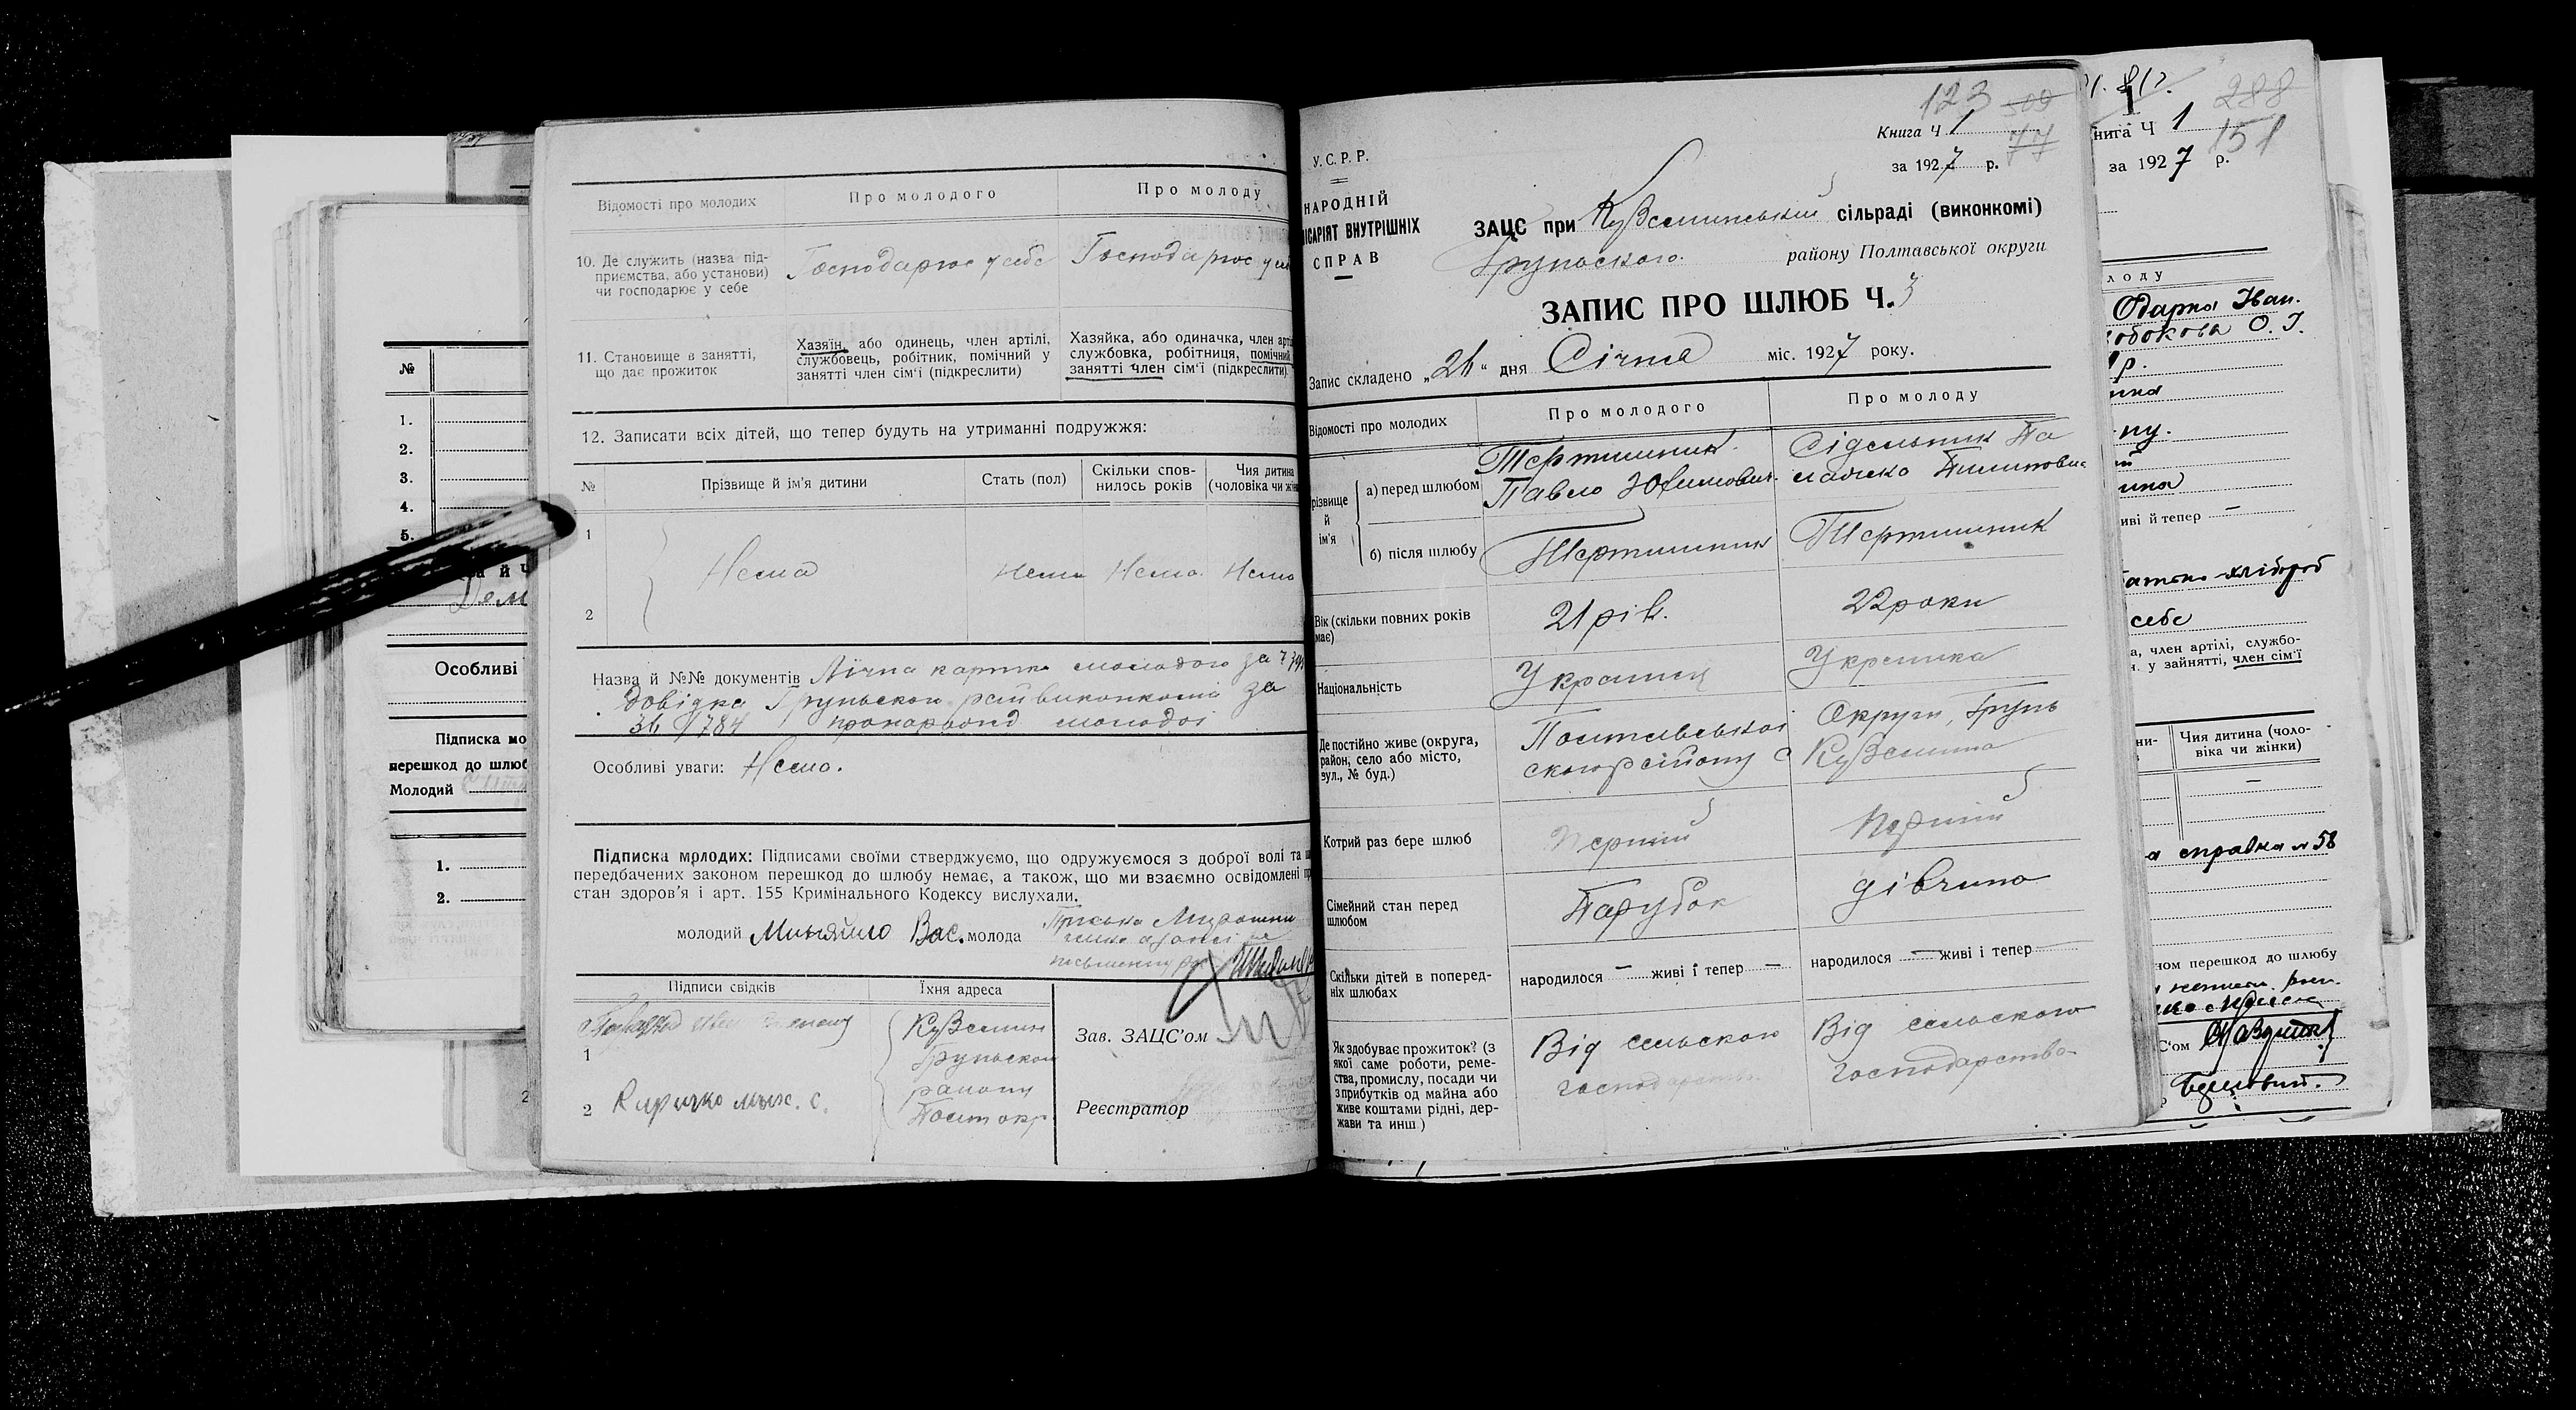 Відомості про молодих
Про молодого
Про молоду
10. Де служить (назва під-
приємства, або установи)
чи господарює у себе
Господарює у себе
Господарює у себе
11. Становище в занятті,
що дає прожиток
Хазяїн, або одинець, член артілі,
службовець, робітник, помічний у
занятті член сім'ї (підкреслити)
Хазяйка, або одиначка, член арті
службовка, робітниця, помічний
занятті член сім'ї (підкреслити)
12. Записати всіх дітей, що тепер будуть на утриманні подружжя:
№
Прізвище й ім'я дитини
Стать (пол)
Скільки спов-
нилось років
Чия дитина
(чоловіка чи жін
1
Нема Нема Нема Нема
2
Назва й №№ документів Лічна картка молодого за
Довідка Груньского райвиконкома за
36/784 молодої
Особливі уваги: Нема.
Підписка молодих: Підписами своїми стверджуємо, що одружуємося з доброї волі та
передбачених законом перешкод до шлюбу немає, а також, що ми взаємно освідомлені
стан здоров'я і арт. 155 Кримінального Кодексу вислухали.
молодий Миняйло Вас. молода
Підписи свідків
Їхня адреса
1
2 Киричко мих. с.
Куземин
Груньского
району
Полт окр
Зав. ЗАЦС'ом
Реєстратор
№
1.
2.
3.
4.
5.
Особливі
Підписка мо
перешкод до шлюб
Молодий
1.
2.
123
77
Книга Ч 1
за 1927 р.
У.С.Р.Р.
НАРОДНІЙ
ІСАРІЯТ ВНУТРІШНІХ
СПРАВ
ЗАЦС при Куземинський сільраді (виконкомі)
Груньского району Полтавської округи
ЗАПИС ПРО ШЛЮБ Ч. 3
Запис складено „26" дня Січня міс. 1927 року.
Відомості про молодих
Про молодого
Про молоду
різвище
й
ім'я
а) перед шлюбом
Тертишник
Павло Юхимович.
Сідельник Па
лажка Пилиповна
б) після шлюбу
Тертишник
Тертишник
Вік (скільки повних років
має)
21 рік.
22 роки
Національність
Украінец
Украинка
Де постійно живе (округа,
район, село або місто,
вул., № буд.)
Полтавськоі Округи, Грунь
ского району с Куземина
Котрий раз бере шлюб
Перший
Перший
Сімейний стан перед
шлюбом
Парубок
дівчина
Скільки дітей в поперед-
ніх шлюбах
народилося – живі і тепер –
народилося – живі і тепер
Як здобуває прожиток? (з
якої саме роботи, реме-
ства, промислу, посади чи
з прибутків од майна або
живе коштами рідні, дер-
жави та инш.)
Від сельского
господарства
Від сельского
господарства
288
151
нига Ч 1
за 1927 р.
лоду
Одарка Іван.
обокова О. І.
иві й тепер –
себе
а, член артілі, службо-
н. у зайнятті, член сім'ї
Чия дитина (чоло-
віка чи жінки)
справка №58
ном перешкод до шлюбу
С'ом